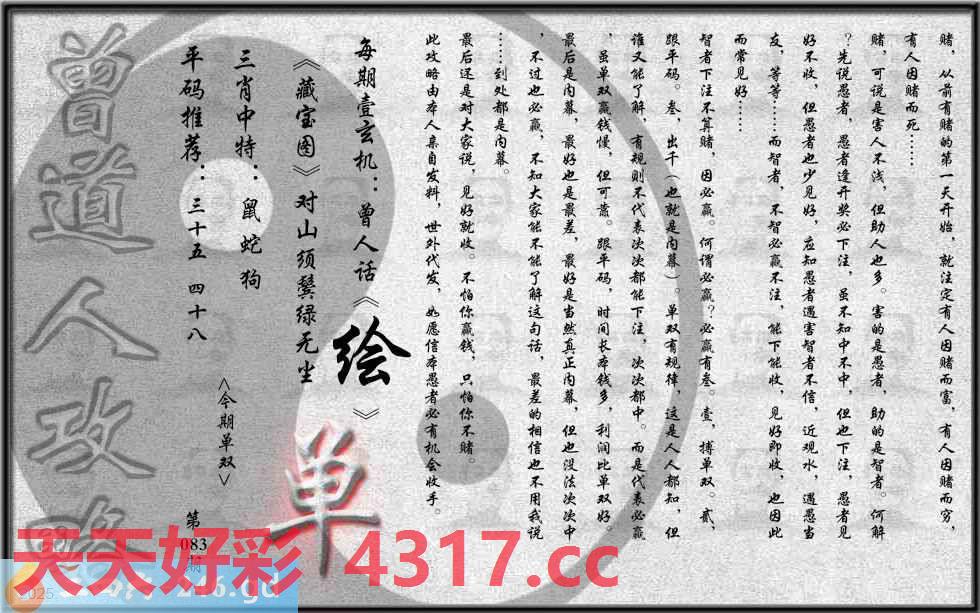 赌，从前有赌的第一天开始，就注定有人因赌而富，有人因赌而穷，
有人因赌而死……
赌，可说是害人不浅，但助人也多。害的是愚者，助的是智者。何解
？先说愚者，愚者逢开奖必下注，虽不知中不中，但也下注，愚者见
好不收，但愚者也少见好，应知愚者遇害智者不信，近观水，遇愚当
友，等等……而智者，不智必赢不注，能下能收，见好即收，也因此
而常见好……
智者下注不算赌，因必赢。何谓必赢？必赢有叁。壹，搏单双。贰，
跟平码。叁，出千（也就是内幕）。单双有规律，这是人人都知，但
谁又能了解，有规则不代表次次都能下注，次次都中。而是代表必赢
，虽单双赢钱慢，但可靠。跟平码，时间长本钱多，利润比单双好。
最后是内幕，最好也是最差，最好是当然真正内幕，但也没法次次中
，不过也必赢，不知大家能不能了解这句话，最差的相信也不用我说
……到处都是内幕。
最后还是对大家说，见好就收。不怕你赢钱，只怕你不赌。
此攻略由本人亲自发料，世外代发，如愿信本愚者必有机会收手。
每期壹玄机：曾人话《绘》
《藏宝图》对山须鬓绿无尘
三肖中特：鼠蛇狗
平码推荐：三十五 四十八
<今期单双>
单
第
083
期
曾道人攻略
天天好彩 4317.cc
2025
246.gd